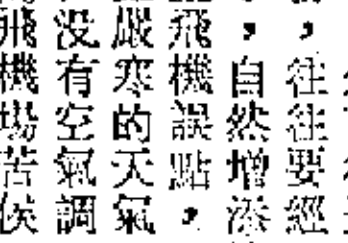 ，往往要經
，自然增添
飛機誤點，
嚴寒的天氣
没有空氣調
飛機場苦候